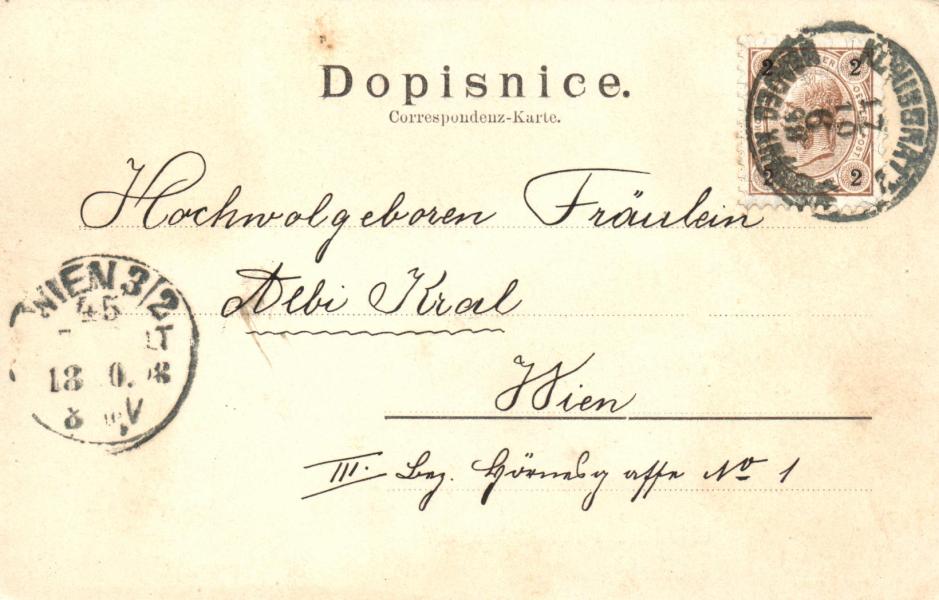 Dopisnice.
Correspondenz-Karte.
2 2
2 2
17 10 98
Hochwolgeboren Fräulein
Albi Kral
WIEN 3/2
45
18 0. 98
8 V
Wien
III. Bez. Hörnesgasse No 1